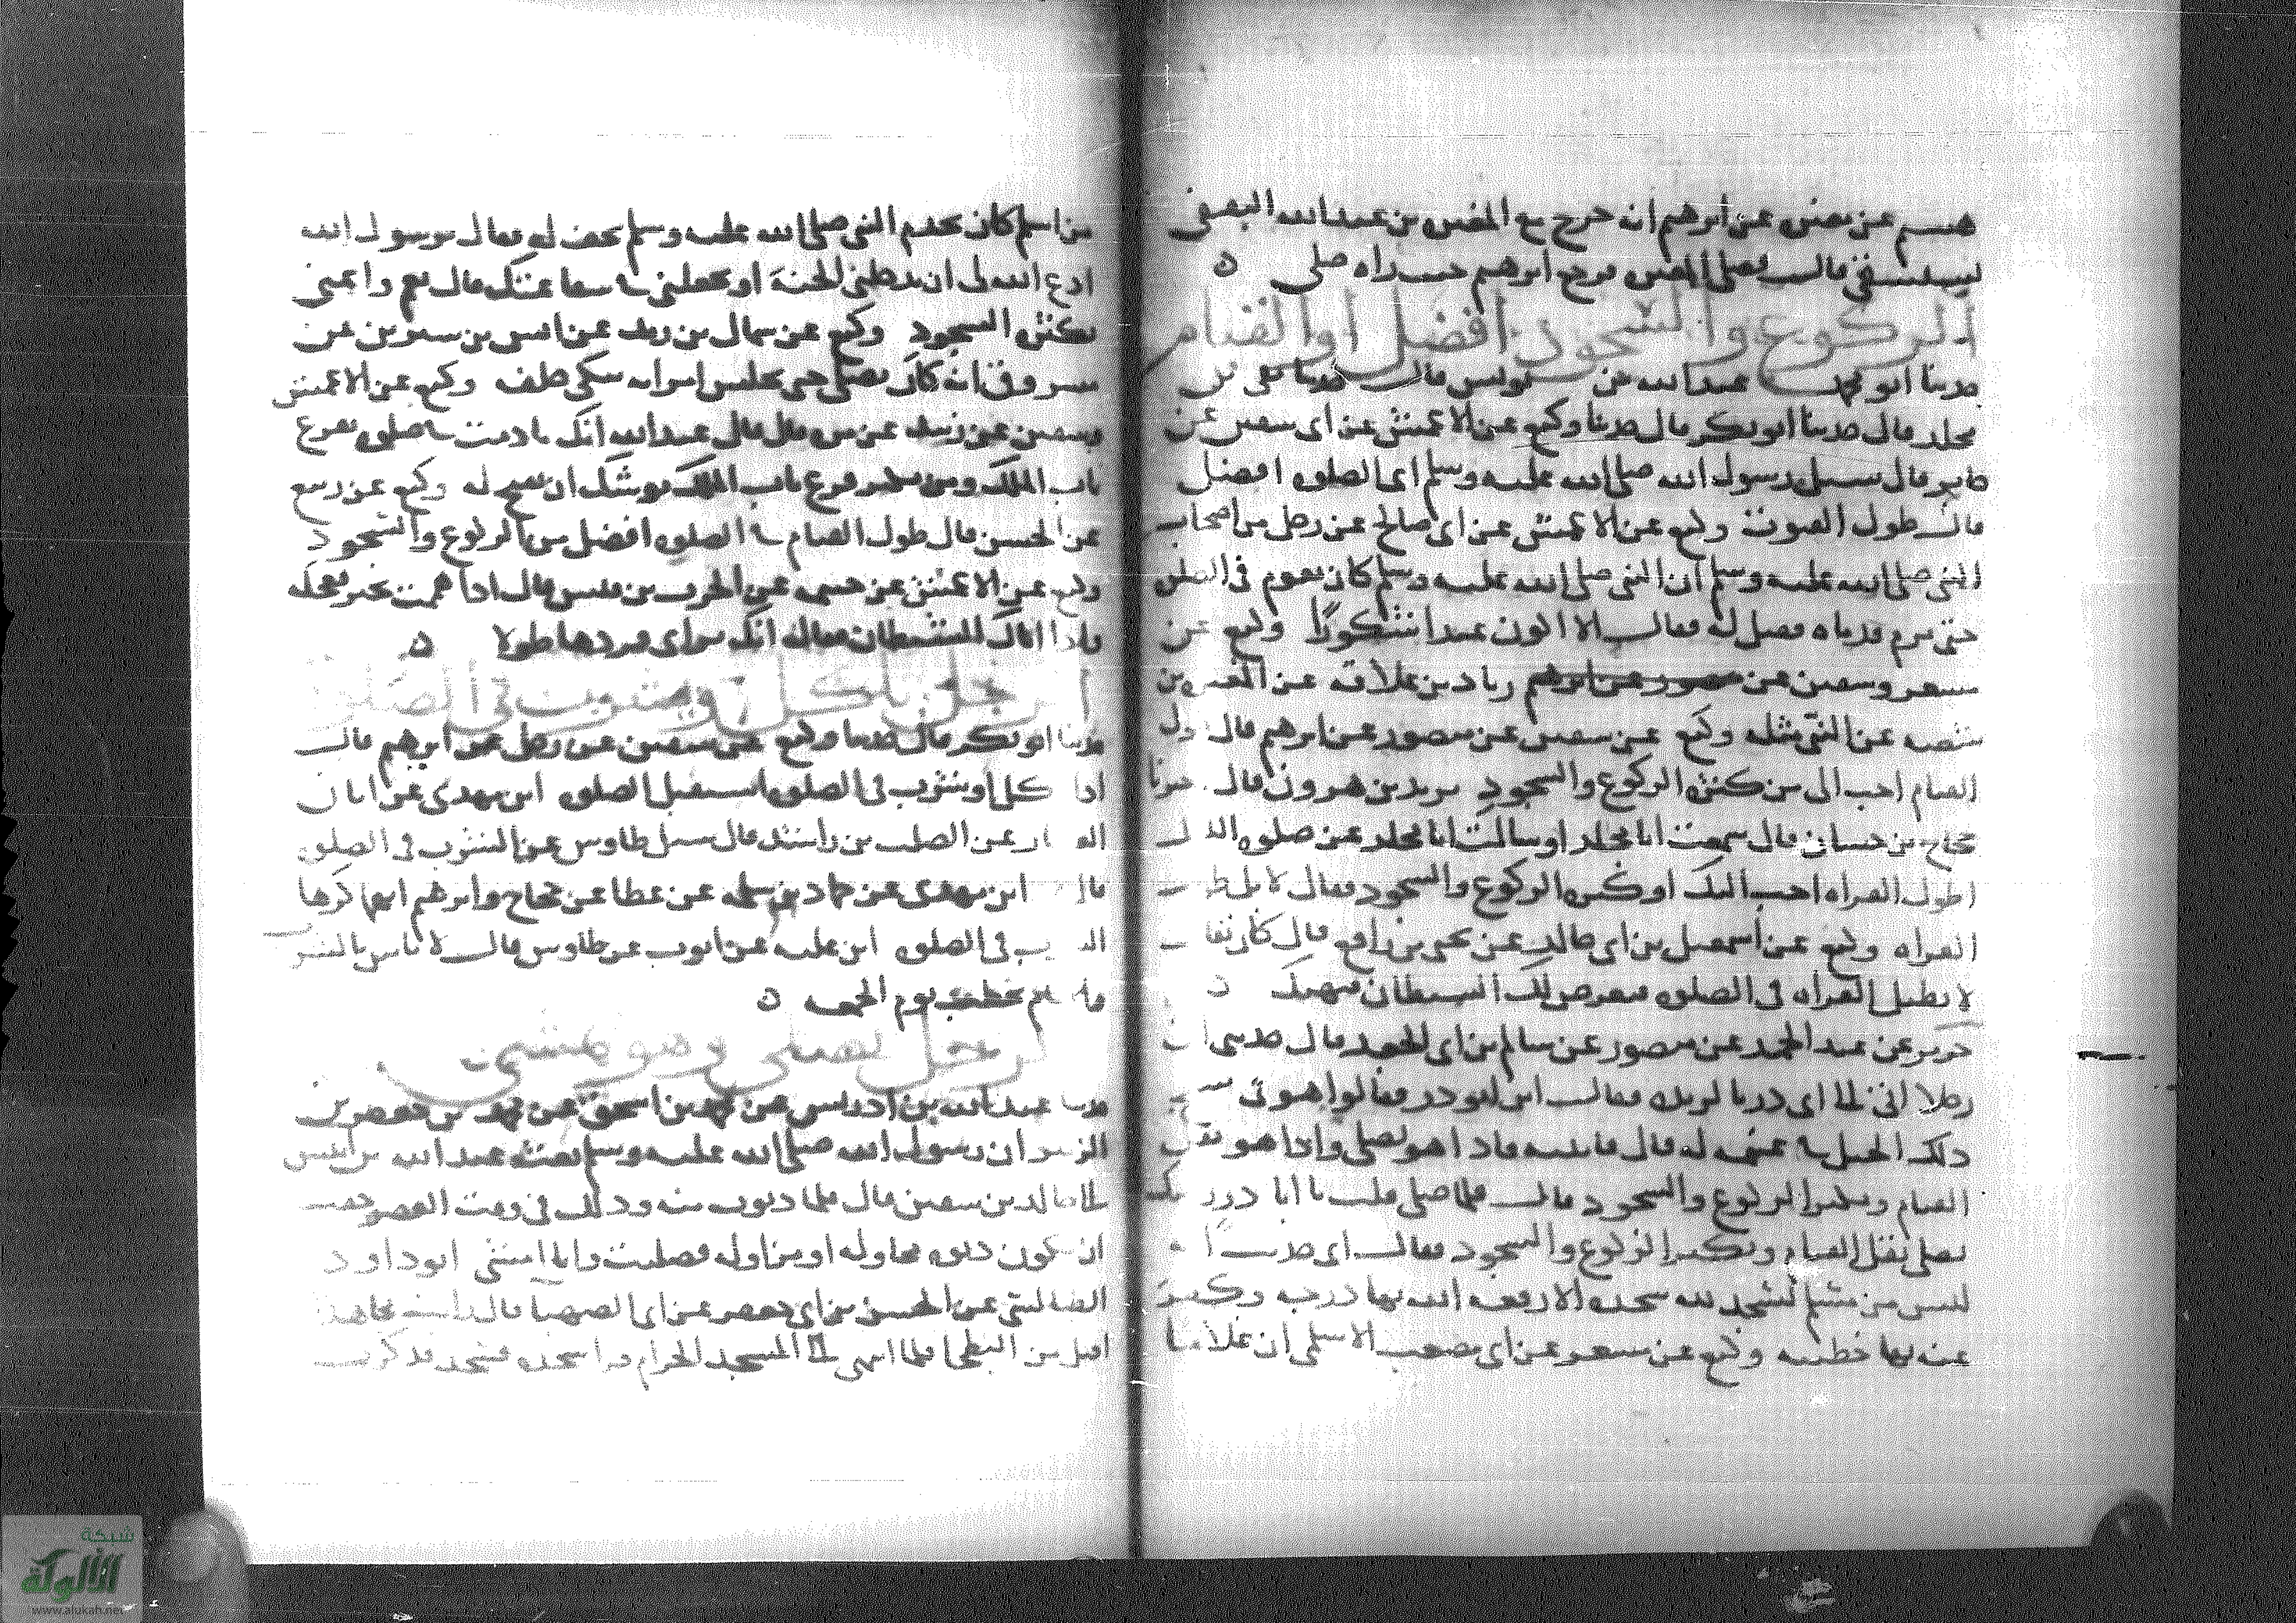 هشيم عن مغيرة عن ابرهيم انه خرج مع المغيرة بن عبد الله اليعفى
فصلى المغيرة فرجع ابرهيم حيث راه صلى ه
الركوع والسجود افضل او القيام
حدثنا ابو عبد الله بن يونس قال حدثنا بقى بن
مخلد قال حدثنا ابو بكر قال حدثنا وكيع عن الاعمش عن ابى سفين عن
جابر قال سيل رسول الله صلى الله عليه وسلم اى الصلوة افضل
قال طول القنوت وكيع عن الاعمش عن ابى صالح عن رجل من اصحاب
النبى صلى الله عليه وسلم ان النبى صلى الله عليه وسلم كان يقوم فى الصلوة
حتى ترم قدماه فقيل له فقال الا اكون عبدا شكورًا وكيع عن
مسعر وسفين عن زياد بن علاقة عن المغيرة بن
شعبه عن النبى مثله وكيع عن سفين عن منصور عن ابرهيم قال طول
القيام احب الى من كثرة الركوع والسجود يزيد بن هرون قال اخبرنا
حجاج بن حسان قال سمعت ابا مجلز او سالت ابا مجلز عن صلوة الليل
اطول القراه احب اليك او كثرة الركوع والسجود فقال لا بل طول
القراه وكيع عن اسمعيل بن ابى خالد عن يحيى بن رافع قال كان يقال
لا تطيل القراه فى الصلوة فيعرض لك الشيطان فيفتنك ه
جرير عن عبد الحميد عن منصور عن سالم بن ابى الجعد قال حدثنى ان
رجلا اتى الى ابى ذر بالربذه فقال اين ابو ذر فقالوا هو فى سفح
ذلك الجبل فى غنيمه له قال فاتيته فاذا هو يصلى واذا هو يقل
القيام ويكثر الركوع والسجود قال فلما صلى قلت يا ابا ذر رايتك
تصلى تقل القيام وتكثر الركوع والسجود فقال انى حدثت ان
ليس من مسلم يسجد لله سجده الا رفعه الله بها درجه وكفر
عنه بها خطيه وكيع عن مسعر عن ابى مصعب الاسلمى ان غلاما
من اسلم كان يخدم النبى صلى الله عليه وسلم يخف له فقال يرسول الله
ادع الله لى ان يدخلنى الجنة او يجعلنى فى شفاعتك قال نعم واعنى
بكثرة السجود وكيع عن عن انس بن سيرين عن
مسروق انه كان يصلى حتى تجلس امراته تبكى خلفه وكيع عن الاعمش
وسفين عن زبيد عن مره قال قال عبد الله انك ما دمت فى صلوة تقرع
باب الملك ومن يكثر قرع باب الملك يوشك ان يفتح له وكيع عن ربيع
عن الحسن قال طول القيام فى الصلوة افضل من الركوع والسجود
وكيع عن الاعمش عن خيثمه عن الحرث بن قيس قال اذا هممت بخير فعجله
واذا اتاك الشيطان فقال انك مراى فزدها طولا ه
الرجل ياكل ويشرب فى الصلوة
حدثنا ابو بكر قال حدثنا وكيع عن سفين عن رجل عن ابرهيم قال
اذا اكل او شرب فى الصلوة استقبل الصلوة ابن مهدى عن ابان
العطار عن الصلت بن راشد قال سيل طاوس عن الشرب فى الصلوة
قال ابن مهدى عن حماد بن سلمه عن عطا عن حجاج وابرهيم انهما كرها
الشرب فى الصلوة ابن عليه عن ايوب عن طاوس قال لا باس بالشرب
والامام يخطب يوم الجمعه ه
الرجل يصلى وهو يمشى
حدثنا عبد الله بن ادريس عن محمد بن اسحق عن محمد بن جعفر بن
الزبير ان رسول الله صلى الله عليه وسلم بعث عبد الله بن انيس
الى خالد بن سفين قال فلما دنوت منه وذلك فى وقت العصر خفت
ان يكون دونه محاوله او مزاوله فصليت وانا امشى ابو داود
الطيالسى عن الحسن بن ابى جعفر عن ابى الصهبا قال رايت مجاهدا
اقبل من البطحا فلما انتهى الى المسجد الحرام قرا سجده فسجد فذكرت
شبكة
الألوكة
www.alukah.net